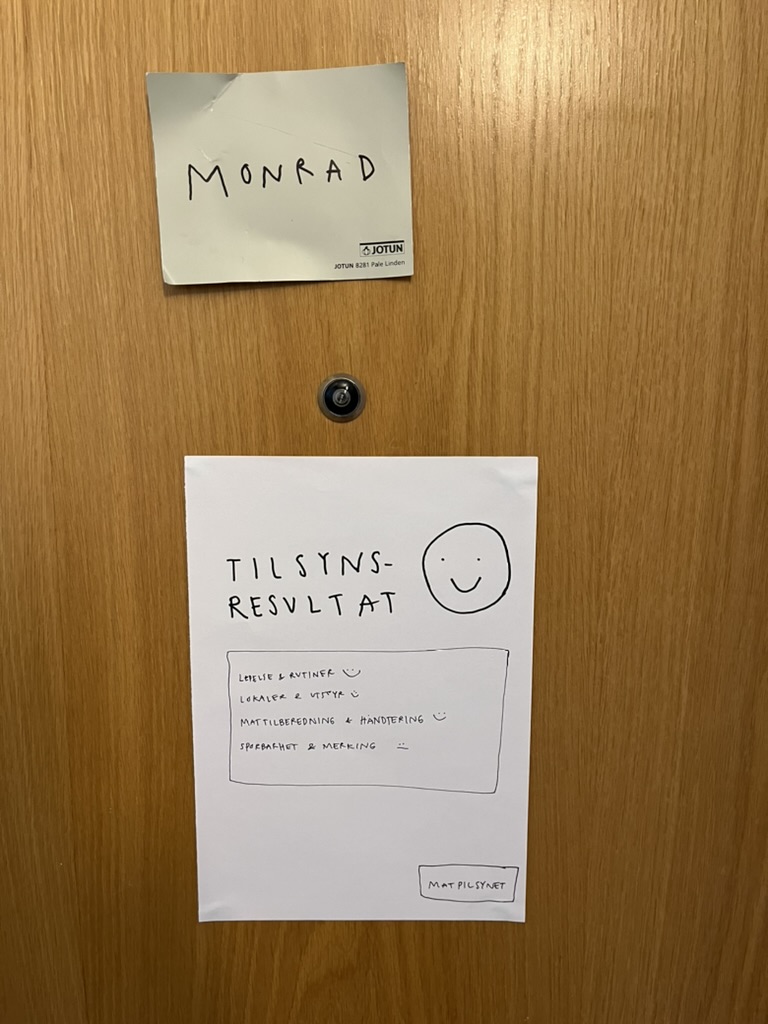 MONRAD
JOTUN
JOTUN 8281 Pale Linden
TILSYNS-
RESULTAT
LEDELSE & RUTINER
LOKALER & UTSTYR
MATTILBEREDNING & HÅNDTERING
SPORBARHET & MERKING
MATPILSYNET